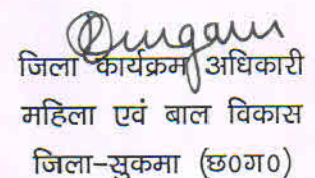 जिला कार्यक्रम अधिकारी
महिला एवं बाल विकास
जिला-सुकमा (छ०ग०)